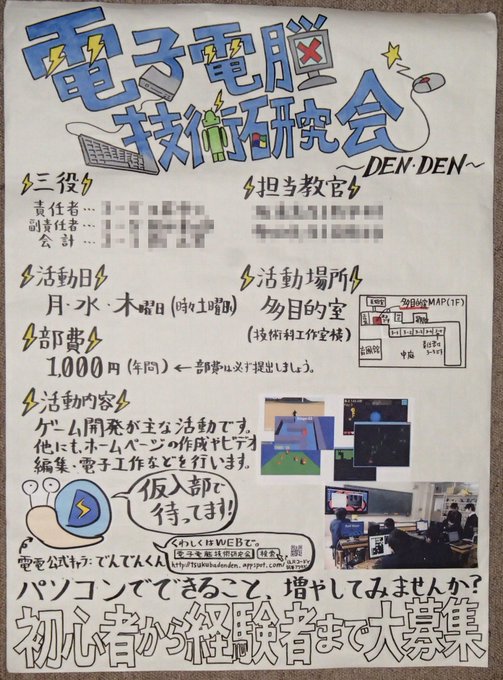 電子電脳
技術研究会
～DEN・DEN～
三役
責任者…
副責任者…
会計…
担当教官
活動日
月・水・木曜日(時々土曜日)
活動場所
多目的室
(技術科工作室横)
多目的室MAP(1F)
中庭
部費
1,000円(年間) ← 部費は必ず提出しましょう。
活動内容
ゲーム開発が主な活動です。
他にも、ホームページの作成やビデオ
編集・電子工作などを行います。
仮入部で
待ってます!
電電公式キャラ:でんでんくん
くわしくはWEBで。
電子電脳技術研究会 検索
http://tsukubadenden.appspot.com/
パソコンでできること、増やしてみませんか?
初心者から経験者まで大募集